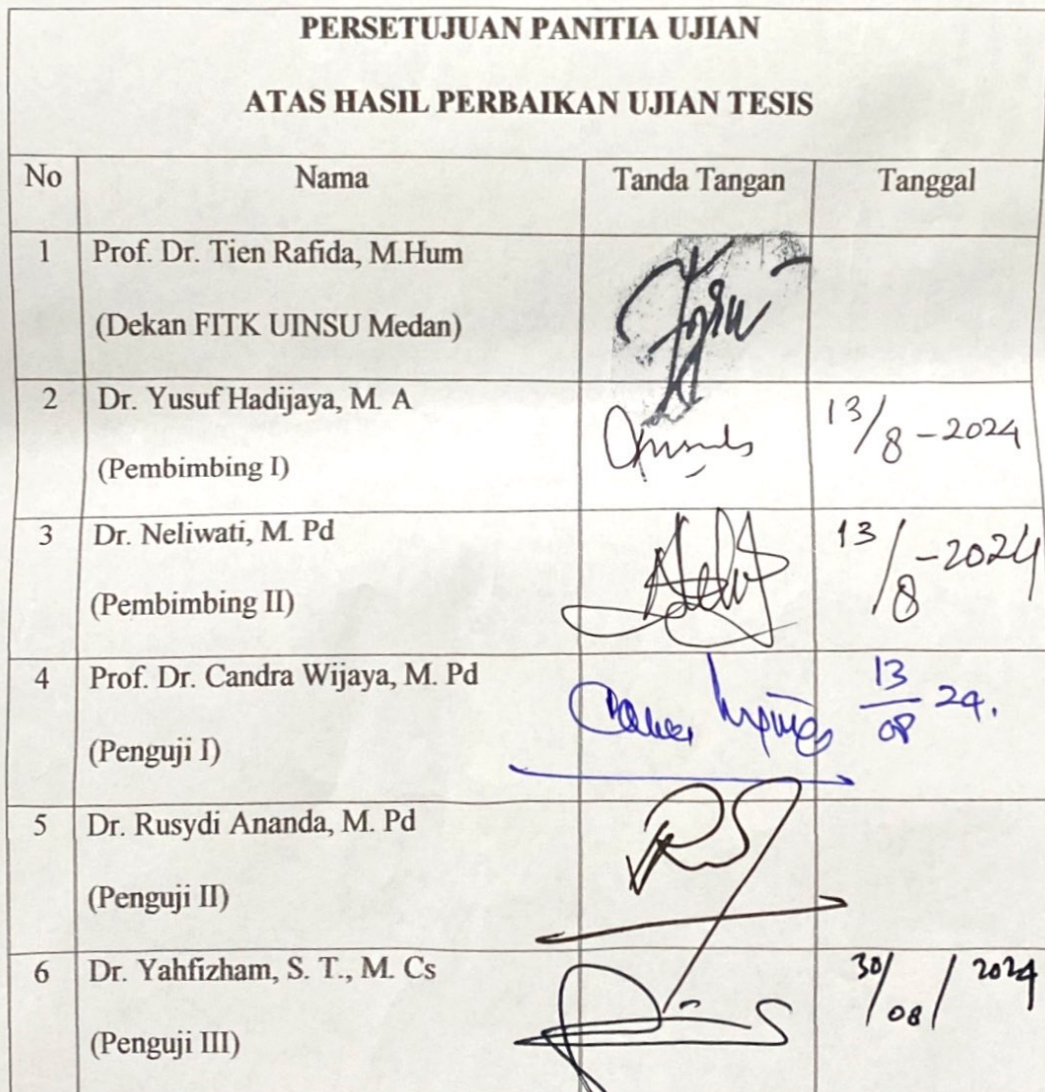 PERSETUJUAN PANITIA UJIAN
ATAS HASIL PERBAIKAN UJIAN TESIS
No Nama Tanda Tangan Tanggal
1 Prof. Dr. Tien Rafida, M.Hum
(Dekan FITK UINSU Medan)
2 Dr. Yusuf Hadijaya, M. A 13/8-2024
(Pembimbing I)
3 Dr. Neliwati, M. Pd 13/8-2024
(Pembimbing II)
4 Prof. Dr. Candra Wijaya, M. Pd 13/08 24.
(Penguji I)
5 Dr. Rusydi Ananda, M. Pd
(Penguji II)
6 Dr. Yahfizham, S. T., M. Cs 30/08/2024
(Penguji III)